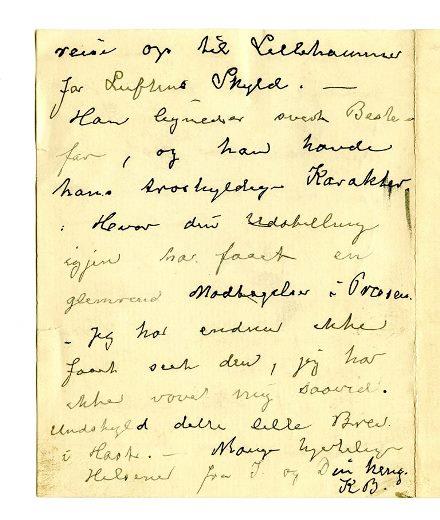 reise op til Lillehammer
for Luftens Skyld. —
Han lignede svært Beste-
far, og han havde
hans troskyldige Karakter
: Hvor din Udstilling
igjen har faaet en
glimrende Modtagelse i Pressen.
– Jeg har endnu ikke
faaet seet den, jeg har
ikke vovet mig saavid.
Undskyld dette lille Brev
i Hast. — Mange hjertelige
Hilsener fra I. og Din heng.
KB.